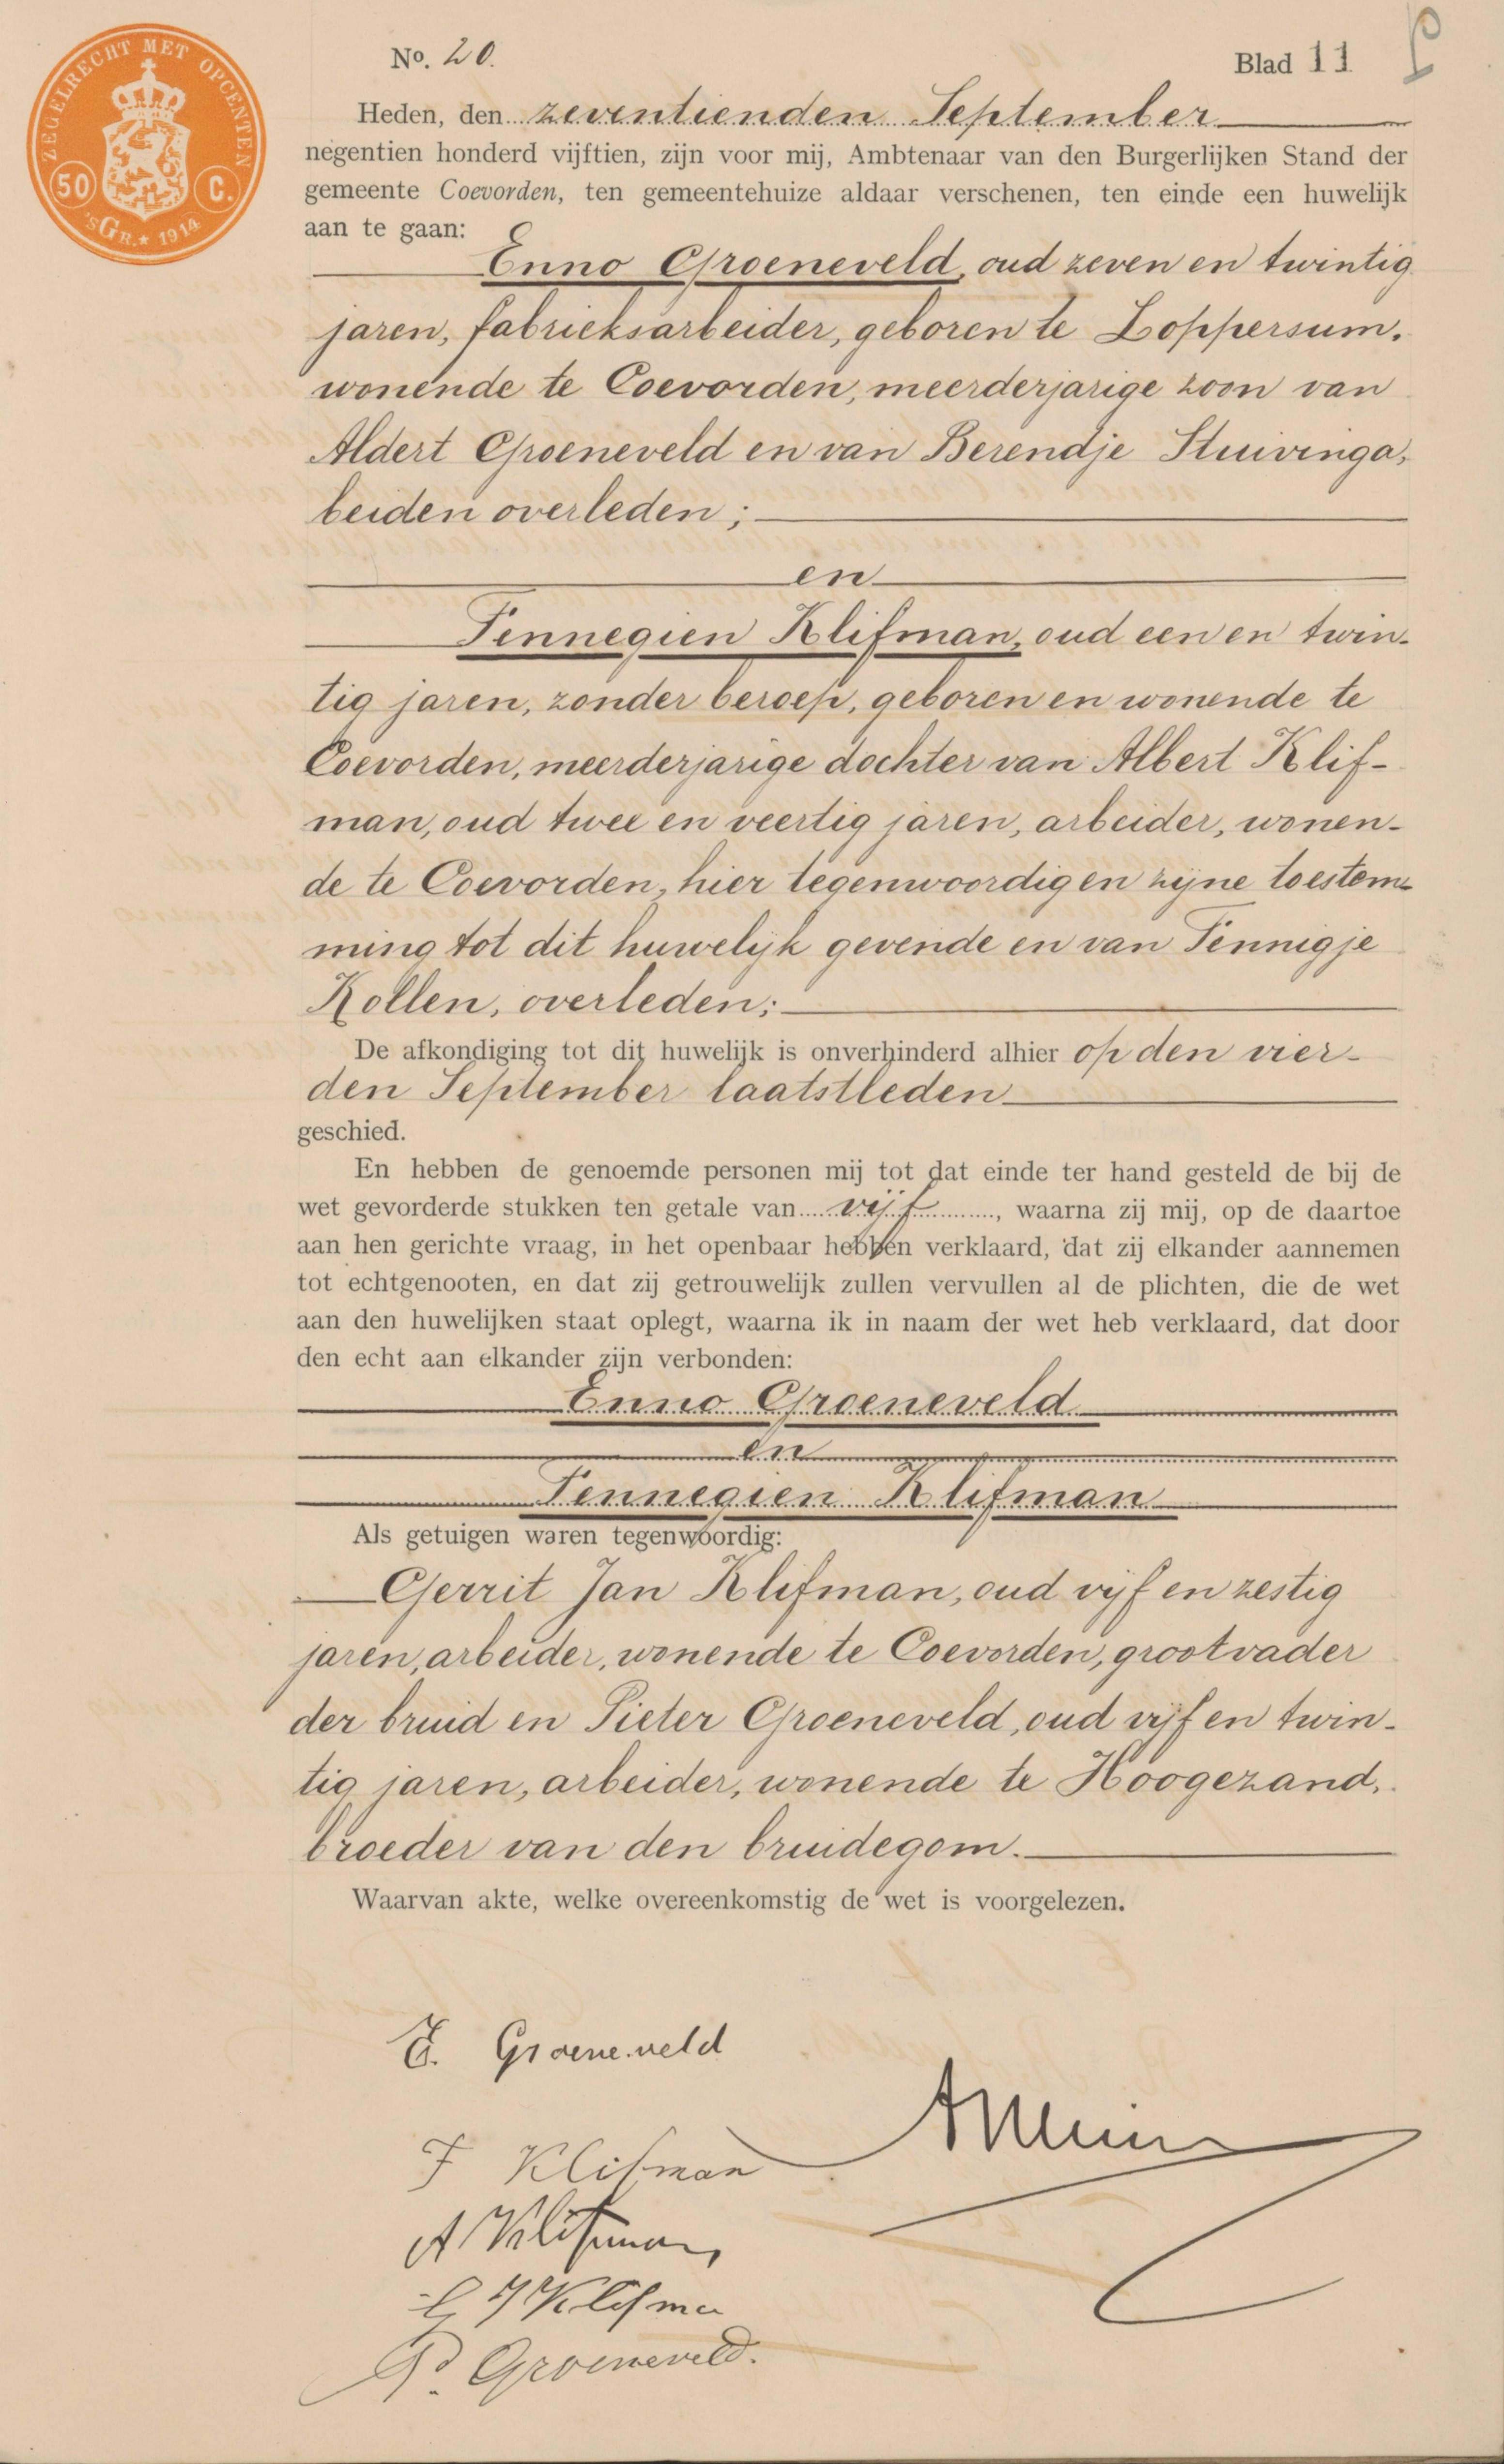 ZEGELRECHT MET OPCENTEN
50 C.
'sGR.★ 1914
No. 20.
Blad 11
Heden, den zeventienden September
negentien honderd vijftien, zijn voor mij, Ambtenaar van den Burgerlijken Stand der
gemeente Coevorden, ten gemeentehuize aldaar verschenen, ten einde een huwelijk
aan te gaan:
Enno Groeneveld, oud zeven en twintig
jaren, fabrieksarbeider, geboren te Loppersum,
wonende te Coevorden, meerderjarige zoon van
Aldert Groeneveld en van Berendje Stuivinga,
beiden overleden;
en
Fennegien Klifman, oud een en twin-
tig jaren, zonder beroep, geboren en wonende te
Coevorden, meerderjarige dochter van Albert Klif-
man, oud twee en veertig jaren, arbeider, wonen-
de te Coevorden, hier tegenwoordig en zijne toestem-
ming tot dit huwelijk gevende en van Fennigje
Kollen, overleden;
De afkondiging tot dit huwelijk is onverhinderd alhier op den vier-
den September laatstleden
geschied.
En hebben de genoemde personen mij tot dat einde ter hand gesteld de bij de
wet gevorderde stukken ten getale van vijf, waarna zij mij, op de daartoe
aan hen gerichte vraag, in het openbaar hebben verklaard, dat zij elkander aannemen
tot echtgenooten, en dat zij getrouwelijk zullen vervullen al de plichten, die de wet
aan den huwelijken staat oplegt, waarna ik in naam der wet heb verklaard, dat door
den echt aan elkander zijn verbonden:
Enno Groeneveld
en
Fennegien Klifman
Als getuigen waren tegenwoordig:
Gerrit Jan Klifman, oud vijf en zestig
jaren, arbeider, wonende te Coevorden, grootvader
der bruid en Pieter Groeneveld, oud vijf en twin-
tig jaren, arbeider, wonende te Hoogezand,
broeder van den bruidegom.
Waarvan akte, welke overeenkomstig de wet is voorgelezen.
E. Groeneveld
F Klifman
A Klifman
G J Klifma
P. Groeneveld.